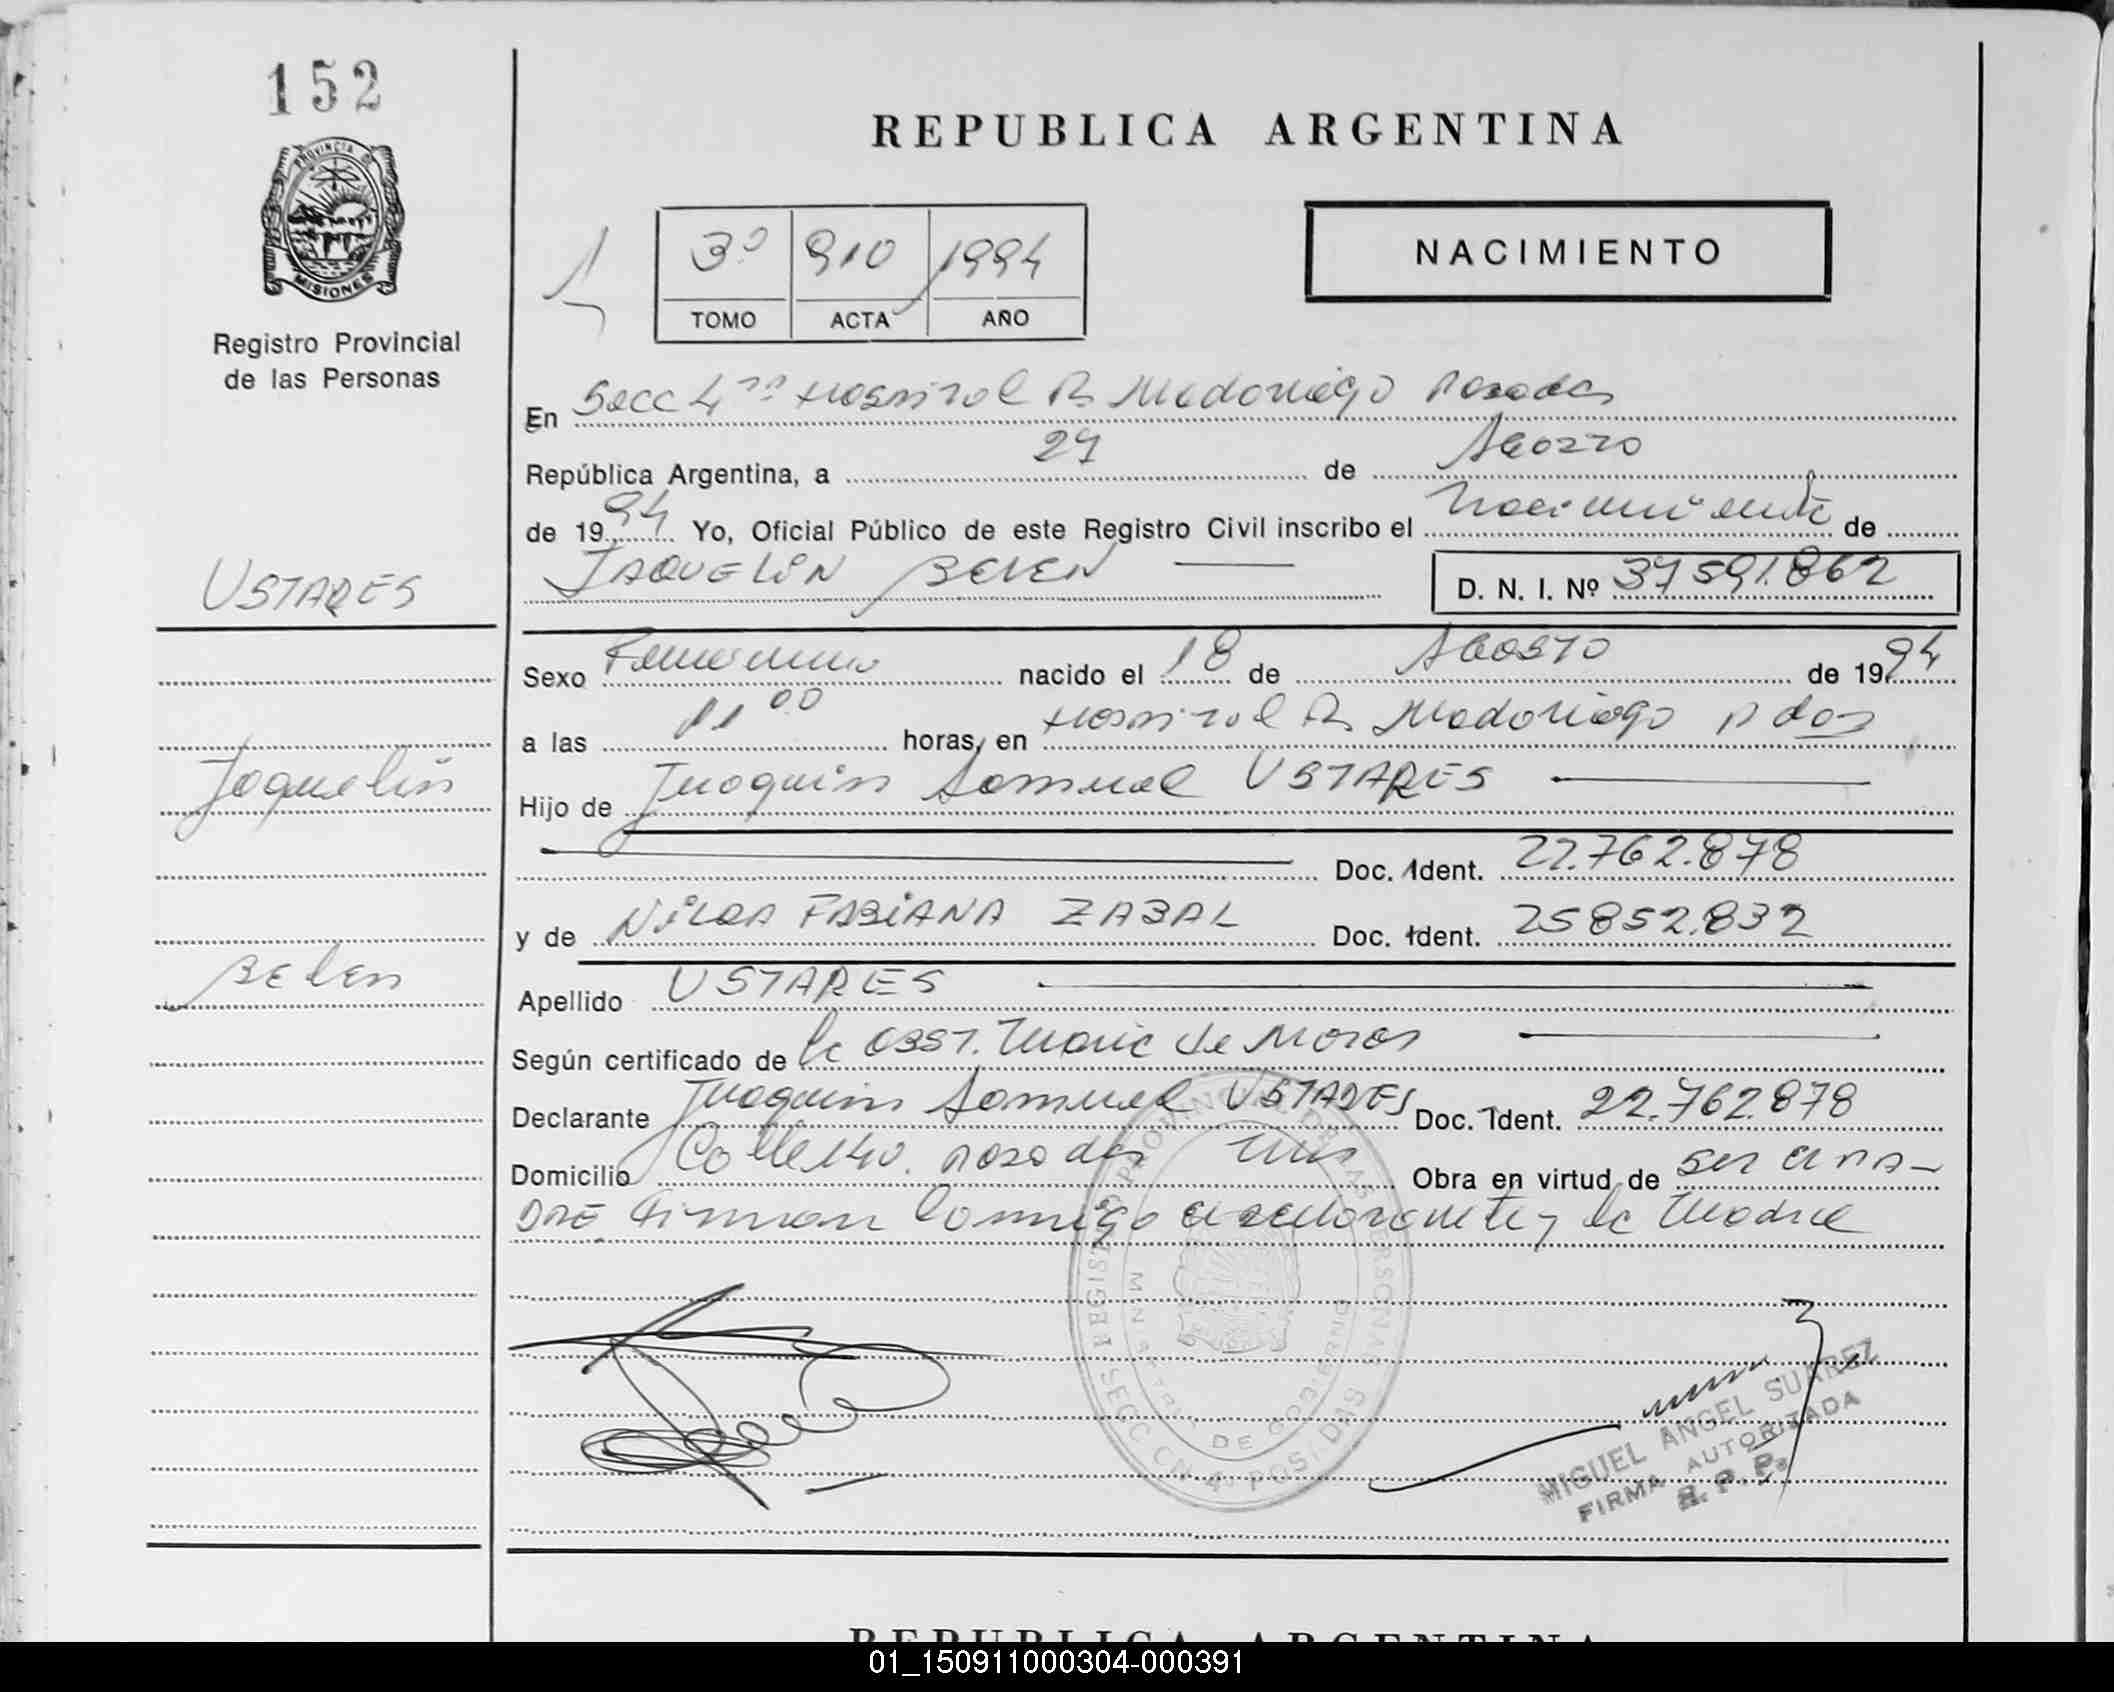 152
REPUBLICA ARGENTINA
PROVINCIA D MISIONES
Registro Provincial
de las Personas
3º 910 1994
TOMO ACTA AÑO
NACIMIENTO
En Secc 4ta Hospital R. Madariaga Posadas
República Argentina, a 29 de Agosto
de 1994 Yo, Oficial Público de este Registro Civil inscribo el nacimiento de
USTARES
JAQUELIN BELEN D. N. I. Nº 37591.862
Sexo Femenino nacido el 18 de Agosto de 1994
a las 11 00 horas, en Hospital R. Madariaga Pdas
Jaquelin
Hijo de Juaquin Samuel USTARES
Doc. Ident. 22.762.878
y de NILDA FABIANA ZABAL Doc. Ident. 25852.832
Belen
Apellido USTARES
Según certificado de la OBST. Maria de Moras
Declarante Juaquin Samuel USTARES Doc. Ident. 22.762.878
Domicilio Calle 140. Posadas Mis Obra en virtud de ser el PA-
DRE Firman Conmigo el declarante y la Madre
REGISTRO PROVINCIAL DE LAS PERSONAS
MINISTERIO DE GOBIERNO
SECCION 4ª POSADAS
MIGUEL ANGEL SUAREZ
FIRMA AUTORIZADA
R. P. P.
REPUBLICA ARGENTINA
01_150911000304-000391